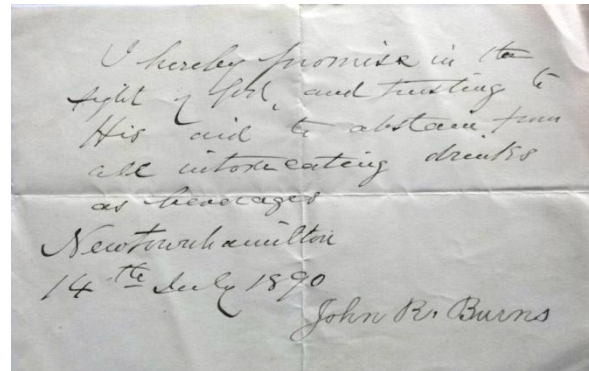 I hereby promise in the
sight of God, and trusting to
His aid to abstain from
all intoxicating drinks
as beverages
Newtownhamilton
14th July 1890
John R. Burns